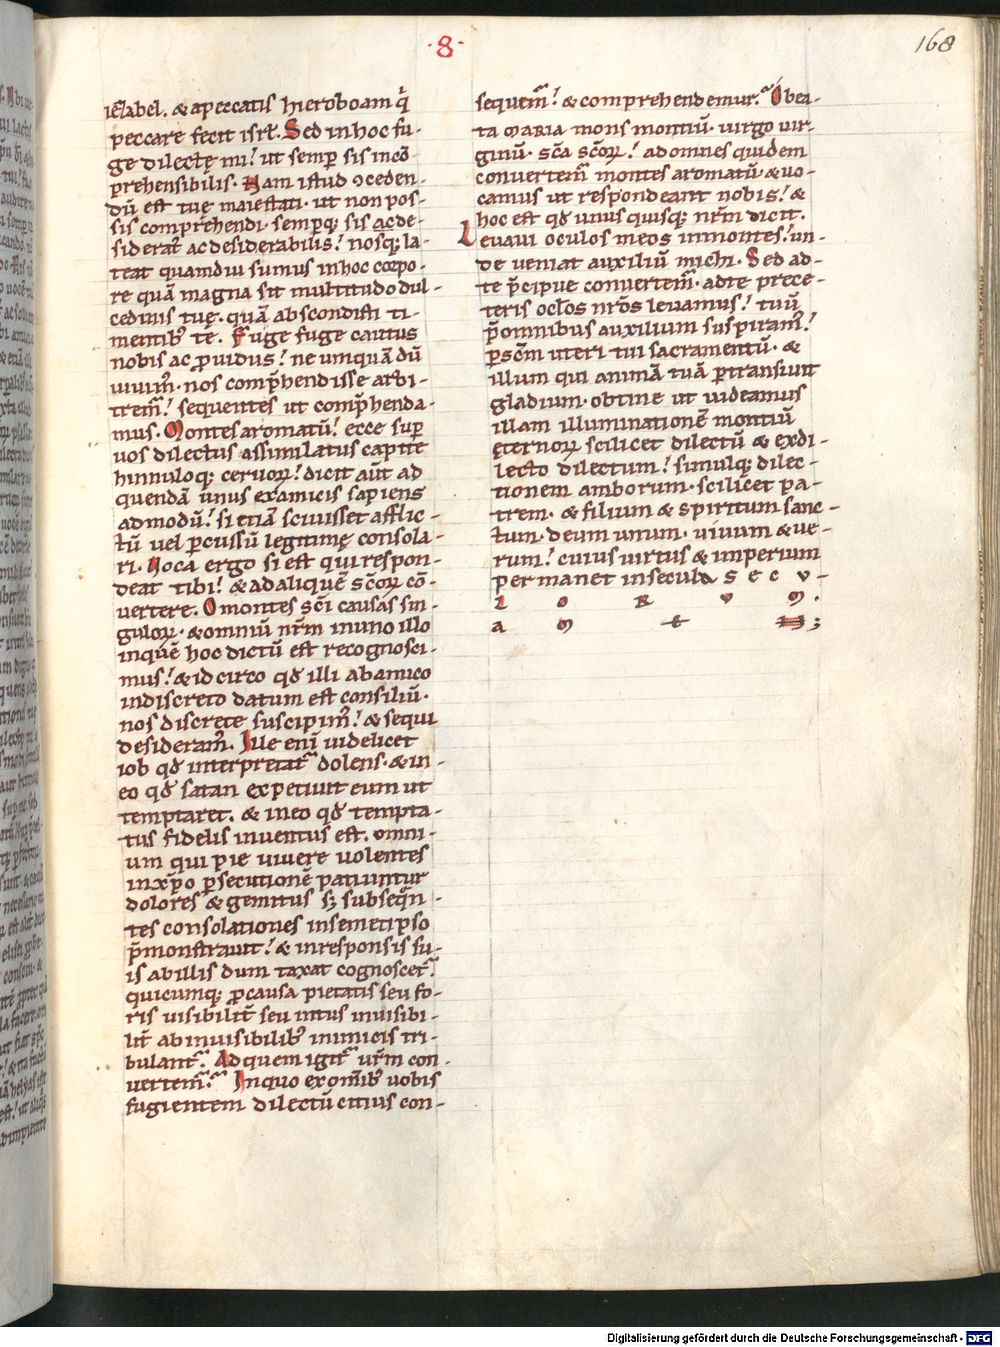 ·8·
168
iezabel. & apeccatis hieroboam q̇
peccare fecit isrł. Sed inhoc fu-
ge dilectę mi! ut semp̱ sis incō-
p̱rehensibilis. Nam istud ɔceden-
dū est tuę maiestati. ut non pos-
sis comprehendi. semp̱q; sis ac de-
siderat᷒ ac desiderabilis! nosq; la-
teat quamdiu sumus inhoc corpo-
re quā magna sit multitudo dul-
cedinis tuę. quā abscondisti ti-
mentib᷒ te. Fuge fuge cautus
nobis ac p̱uidus! ne umquā dū
uiuim᷒. nos comp̄hendisse arbi-
trem᷒! sequentes ut comp̄henda-
mus. Montes aromatū! ecce sup̱
uos dilectus assimilatus capree
hinnuloq; ceruoꝝ! dicit aūt ad
quendā unus examicis sapiens
admodū! si etiā sciuisset afflic-
tū uel p̱cussū legitimę consola-
ri. Uoca ergo si est qui respon-
deat tibi! & adaliquē s̄coꝝ cō-
uertere. O montes s̄ci causas sin-
guloꝝ. & omniū nr̄m inuno illo
inquē hoc dictū est recognosci-
mus! & idcirco qđ illi abamico
indiscreto datum est consiliū.
nos discrete suscipim᷒! & sequi
desideram᷒. Ille enī uidelicet
iob qđ interpretat᷒ dolens. & in-
eo qđ satan expetiuit eum ut
temptaret. & ineo qđ tempta-
tus fidelis inuentus est. omni-
um qui pie uiuere uolentes
inxp̄o p̱secutionē patiuntur
dolores & gemitus s; subseq̄n-
tes consolationes insemetipso
p̄monstrauit! & inresponsis su-
is abillis dum taxat cognoscet᷒
quicumq; p̱causa pietatis seu fo-
ris uisibilit̄ seu intus inuisibi-
lit̄ abinuisibilib᷒ inimicis tri-
bulant᷒. Ad quem igit᷒ ur̄m con-
uertem᷒. Inquo exomīb᷒ uobis
fugientem dilectū citius con-
sequem᷒! & comprehendemur. O bea-
ta MARIA mons montiū. uirgo uir-
ginū. s̄ca s̄coꝝ! adomnes quidem
conuertem᷒ montes aromatū. & uo-
camus ut respondeant nobis! &
hoc est qđ unus quisq; nr̄m dicit.
Leuaui oculos meos inmontes! un-
de ueniat auxiliū michi. Sed ad-
te p̄cipue conuertem᷒. adte prece-
teris oclos nr̄os leuamus! tuū
p̄omnibus auxilium suspiram᷒!
p̱s̄cm uteri tui sacramentū. &
illum qui animā tuā p̱transiuit
gladium. obtine ut uideamus
illam illuminationē montiū
ęternoꝝ scilicet dilectū & exdi-
lecto dilectum! simulq; dilec-
tionem amborum. scilicet pa-
trem. & filium & spiritum sanc-
tum. deum unum. uiuum & ue-
rum! cuius uirtus & imperium
permanet insecula s e c v -
l o R v m .
a m e N ;
Digitalisierung gefördert durch die Deutsche Forschungsgemeinschaft - DFG